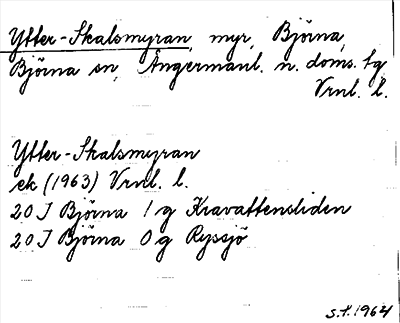 Ytter-Skalsmyran, myr, Björna,
Björna sn, Ångermanl. n. doms. tg
Vrnl. l.
Ytter-Skalsmyran
ek (1963) Vrnl. l.
20 J Björna 1 g Kravattensliden
20 J Björna 0 g Ryssjö
s.t. 1964